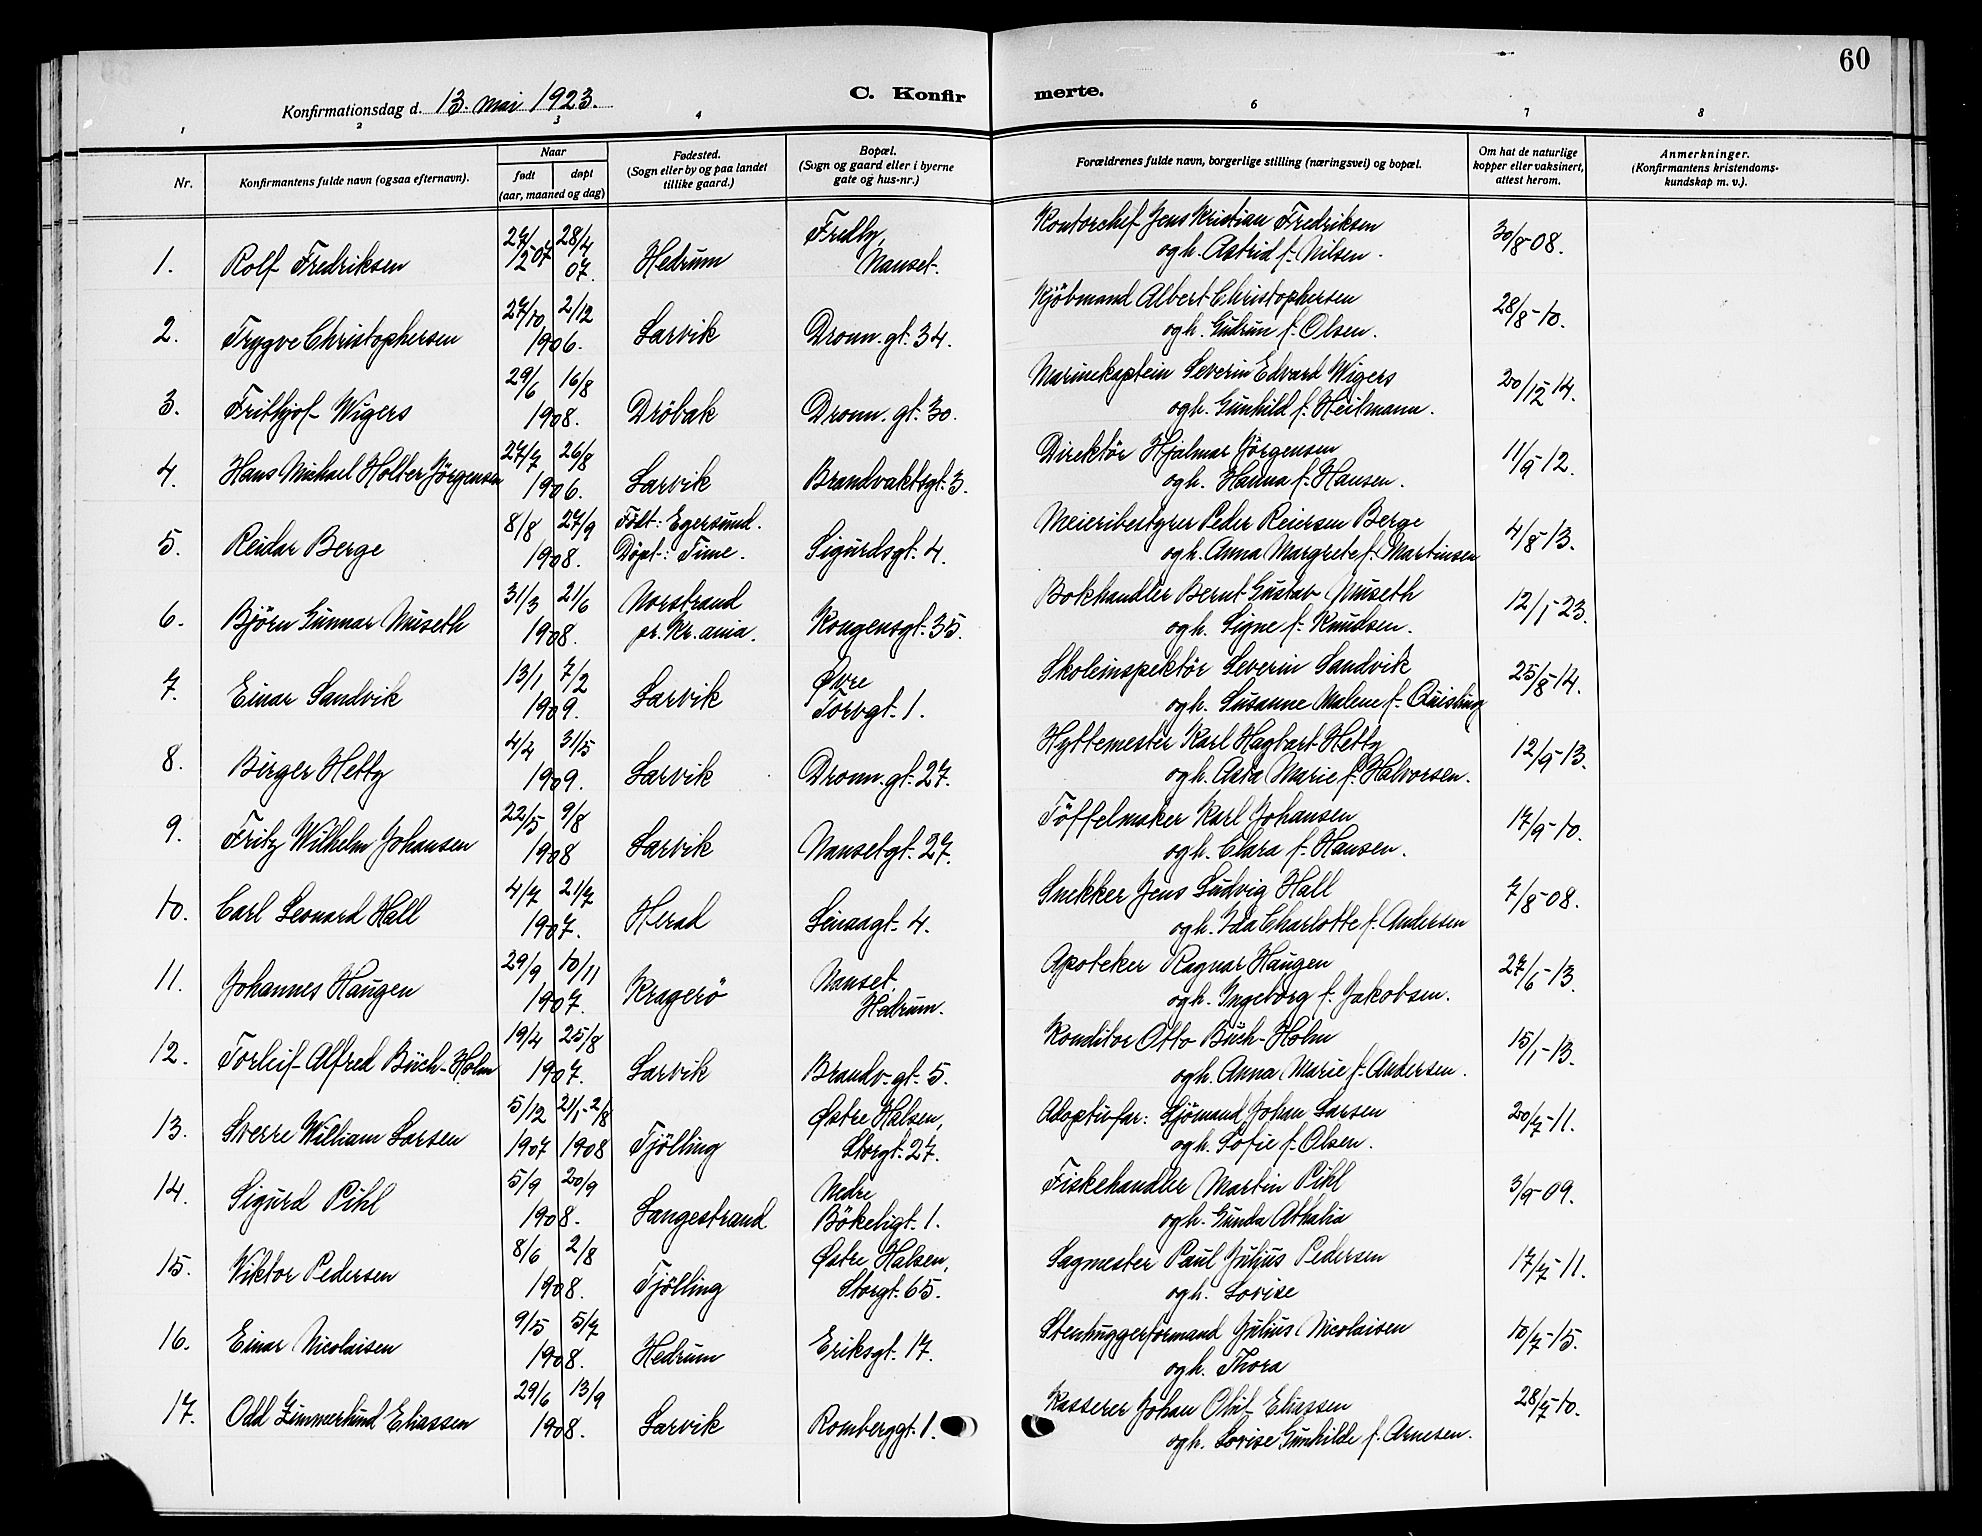 60
Konfirmationsdag d. 13. mai 1923.
C. Konfirmerte.
1 2 3 4 6 7 8
Nr.
Konfirmantens fulde navn (ogsaa efternavn).
Naar
født
døpt
(aar, maaned og dag)
Fødested.
(Sogn eller by og paa landet
tillike gaard.)
Bopæl.
(Sogn og gaard eller i byerne
gate og hus-nr.)
Forældrenes fulde navn, borgerlige stilling (næringsvei) og bopæl.
Om hat de naturlige
kopper eller vaksinert,
attest herom.
Anmerkninger.
(Konfirmantens kristendoms-
kundskap m. v.).
1. Rolf Fredriksen 27/12 07 28/4 07. Hedrum Fredby, Nanset.
Kontorchef Jens Kristian Fredriksen
og h. Astrid f. Nilsen. 30/8-08.
2. Trygve Christophersen 27/10 2/12 1906. Larvik Dronn. gt. 34.
Kjöbmand Albert Christophersen
og h. Gudrun f. Olsen. 28/8-10.
3. Frithjof Wigers 29/6 16/8 1908. Dröbak Dronn. gt. 30.
Marinekaptein Severin Edvard Wigers
og h. Gunhild f. Heitmann. 20/12-14.
4. Hans Michael Holter Jörgensen 27/7 26/8 1906. Larvik Brandvaktsgt. 3.
Direktör Hjalmar Jörgensen
og h. Hanna f. Hansen. 11/9-12.
5. Reidar Berge 8/8 27/9 1908. Födt: Egersund. Döpt: Time. Sigurdsgt. 4.
Meieribestyrer Peder Reiersen Berge
og h. Anna Margrete f. Martinsen 4/8-13.
6. Björn Gunnar Museth 31/3 21/6 1908. Norstrand pr. Kr.ania. Kongensgt. 35.
Bokhandler Bernt Gustav Museth
og h. Signe f. Knudsen. 12/1-23.
7. Einar Sandvik 13/1 7/2 1909. Larvik Øvre Torvgt. 1.
Skoleinspektör Severin Sandvik
og h. Susanne Malene f. Quisling 25/8-14.
8. Birger Hetty 4/4 31/5 1909. Larvik Dronn. gt. 27.
Hyttemester Karl Hagbart Hetty
og h. Asta Marie f. Halvorsen. 12/9-13.
9. Fritz Wilhelm Johansen 22/5 9/8 1908 Larvik Nansetgt. 27.
Töffelmaker Karl Johansen
og h. Clara f. Hansen. 17/9-10.
10. Carl Leonard Hall 4/7 21/7 1907. Herad Linaagt. 4.
Snekker Jens Ludvig Hall
og h. Ida Charlotte f. Andersen 7/8-08.
11. Johannes Haugen 29/9 10/11 1907. Kragerö Nanset. Hedrum.
Apoteker Ragnar Haugen
og h. Ingeborg f. Jakobsen. 27/6-13.
12. Torleif Alfred Buch-Holm 19/4 25/8 1907. Larvik Brandv. gt. 5.
Konditor Otto Buch-Holm
og h. Anna Marie f. Andersen. 15/1-13.
13. Sverre William Larsen 5/12 1907 21/1-2/8 1908 Tjölling Østre Halsen, Storgt. 27.
Adoptivfar: Sjömand Johan Larsen
og h. Sofie f. Olsen. 20/7-11.
14. Sigurd Pihl 5/9 20/9 1908. Langestrand Nedre Bökeligt. 1.
Fiskehandler Martin Pihl
og h. Gunda Athalia 3/9-09.
15. Viktor Pedersen 8/6 2/8 1908. Tjölling Østre Halsen, Storgt. 65.
Sagmester Paul Julius Pedersen
og h. Lovise 17/7-11.
16. Einar Nicolaisen 9/5 5/7 1908. Hedrum Eriksgt. 17.
Stenhuggerformand Julius Nicolaisen
og h. Thora 10/7-15.
17. Odd Zimmerlund Eliassen 29/6 13/9 1908. Larvik Romberggt. 1.
Kasserer Johan Eliassen
og h. Lovise Gunhilde f. Arnesen. 28/7-10.